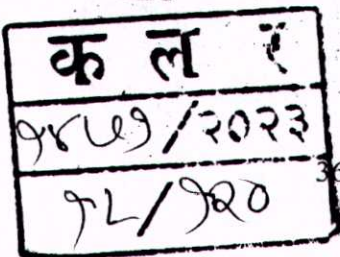 क ल र
१४७१/२०२३
१८/१२०